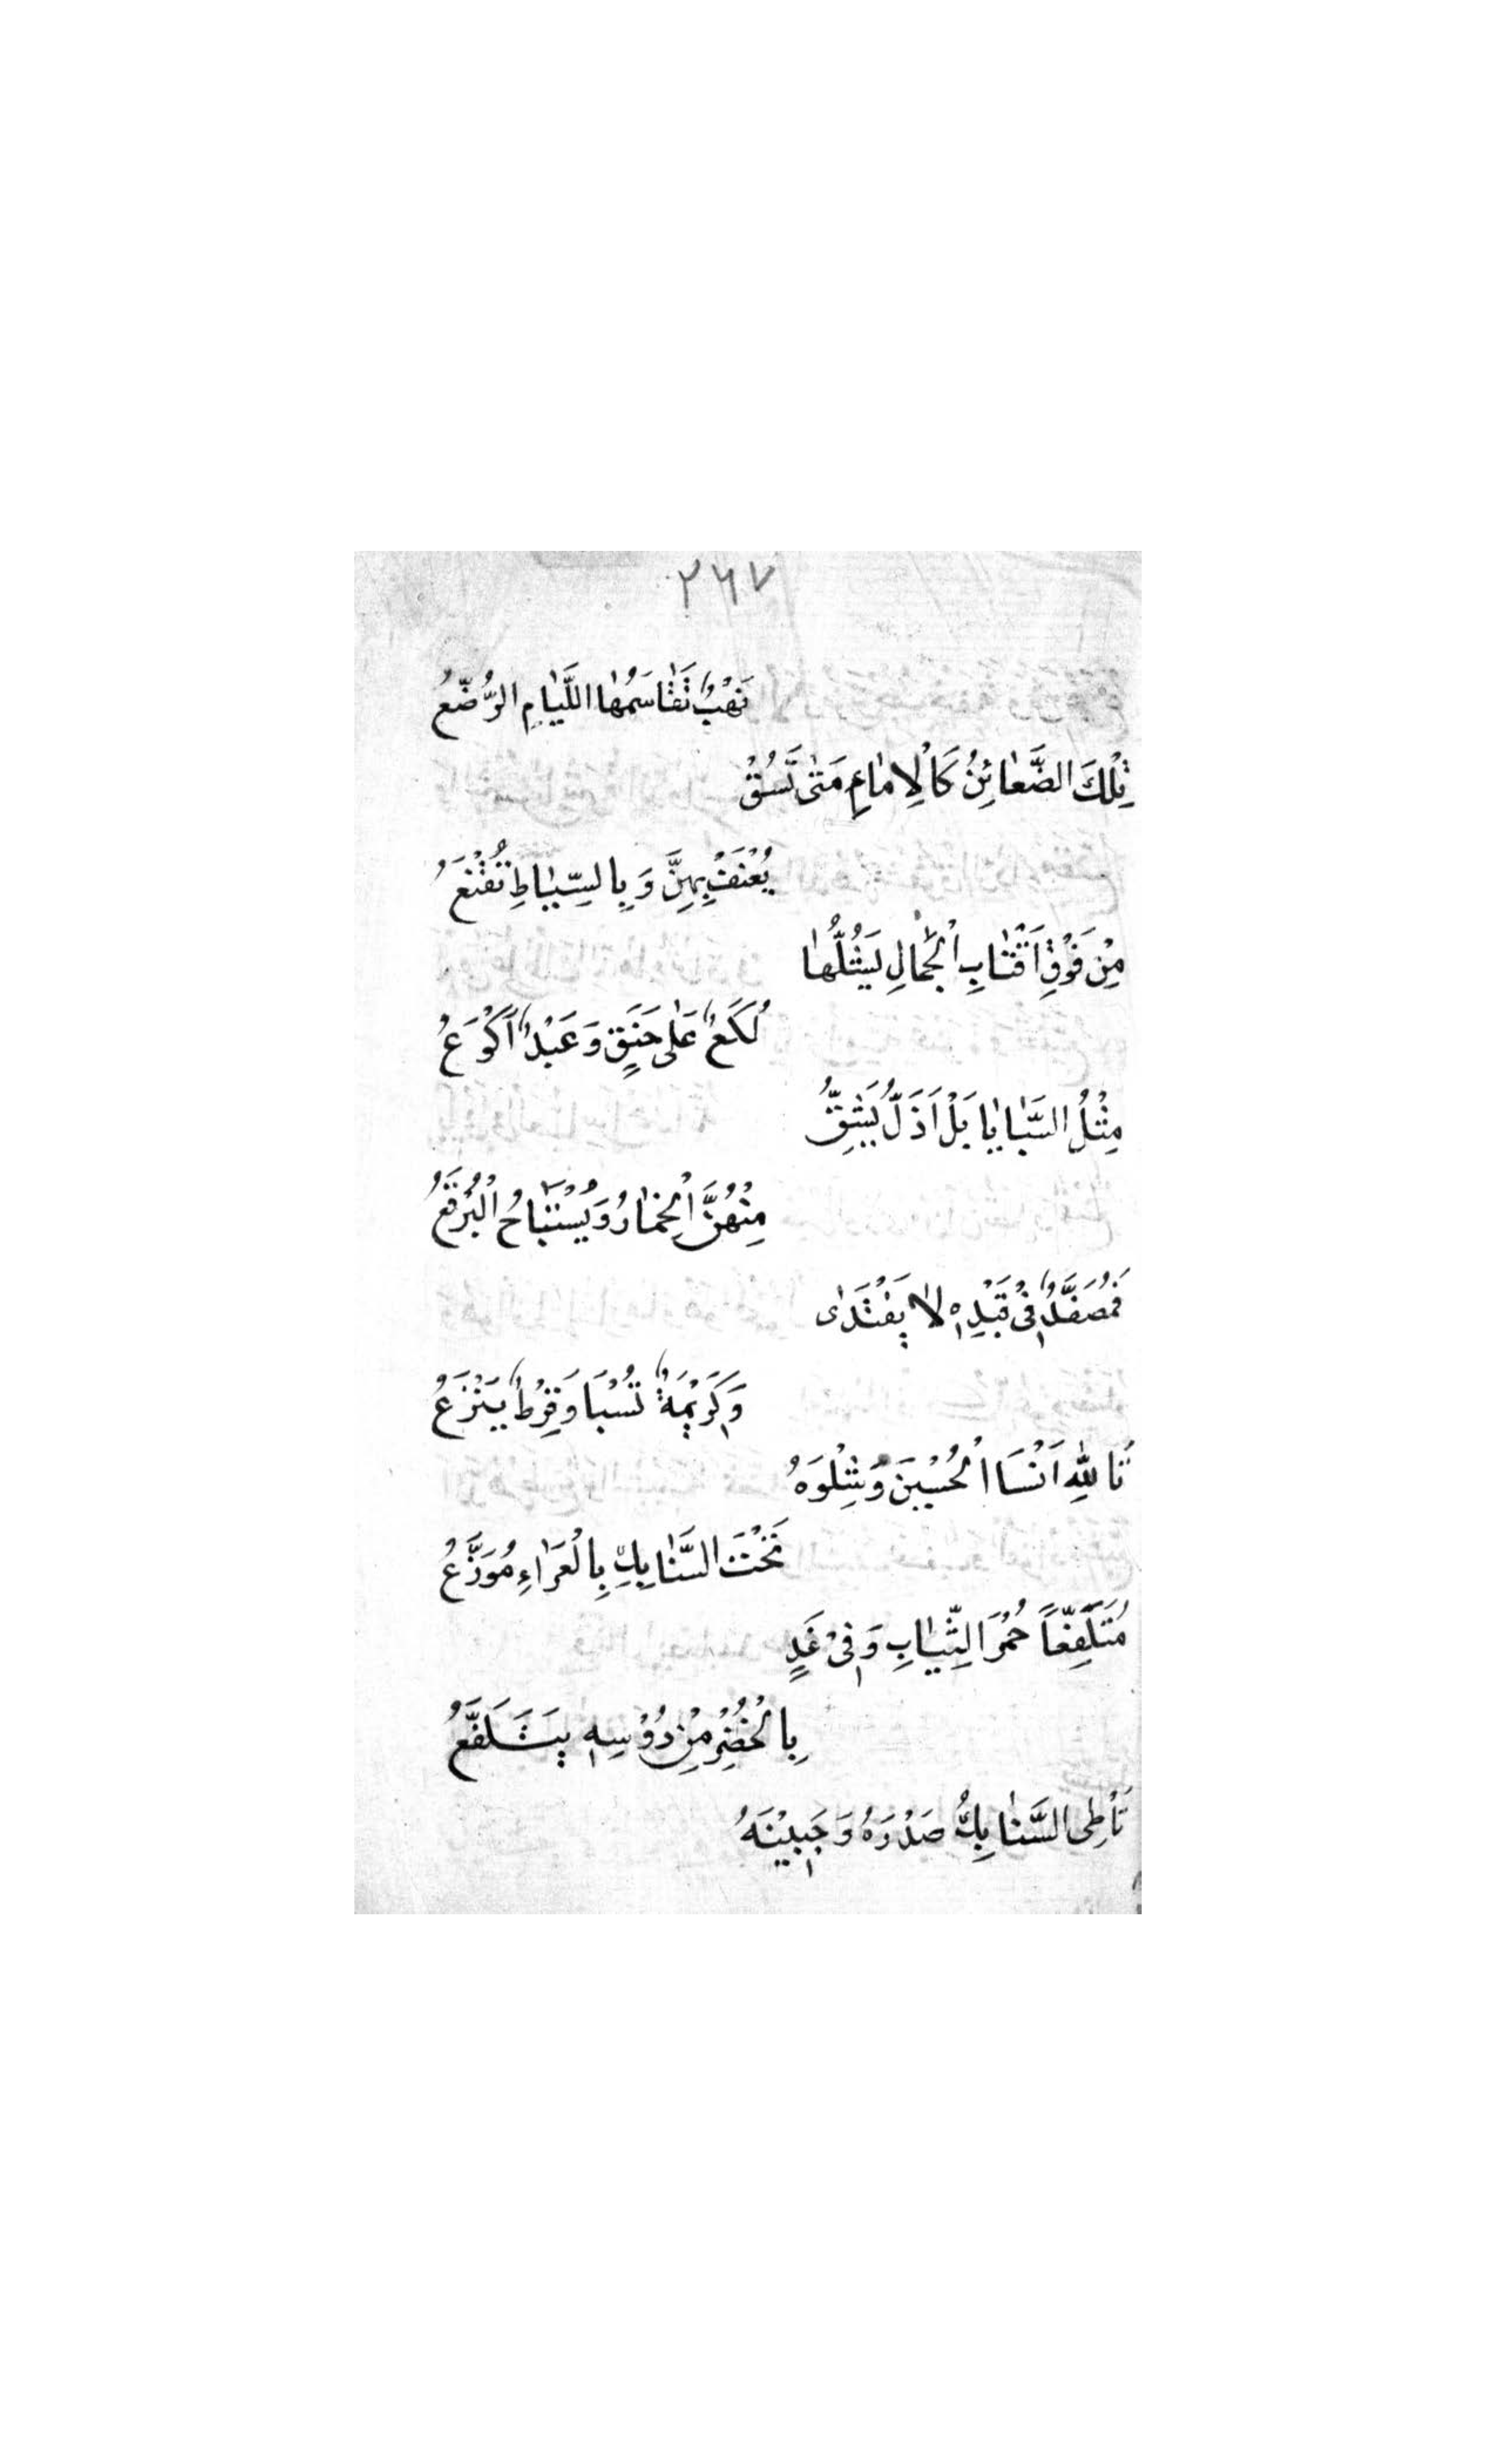 ٢٦٧
نَهْبٌ تَقٰاسَمُهٰا اللِّيٰامِ الرُّضَّعُ
تِلْكَ الضَّعٰائِنُ كَالْاِمٰاءِ مَتٰى تَسُقْ
يُعْنَفْ بِهِنَّ وَبِالسِّيٰاطِ تُقْنَعُ
مِنْ فَوْقِ اَقْتٰابِ الْجِمٰالِ يَشُلُّهٰا
لُكَعٌ عَلٰى حَنَقٍ وَعَبْدٌ اَكْوَعُ
مِثْلُ السَّبٰايٰا بَلْ اَذَلُّ يُشَقُّ
مِنْهُنَّ الْخِمٰارُ وَيُسْتَبٰاحُ الْبُرْقَعُ
فَمُصَفَّدٌ فِيْ قَيْدِهِ لٰا يَفْتَدٰى
وَكَرِيْمَةٌ تُسْبَا وَقِرْطٌ يَنْزَعُ
تَاللّٰهِ اَنْسَا الْحُسَيْنَ وَشِلْوَهُ
تَحْتَ السَّنٰابِكِ بِالْعَرٰاءِ مُوَزَّعُ
مُتَلَفِّعًا حُمْرَ الثِّيٰابِ وَفِيْ غَدٍ
بِالْخُضْرِ مِنْ دُوْسِهِ يَتَلَفَّعُ
تَأْطِى السَّنٰابِكُ صَدْرَهُ وَجَبِيْنَهُ